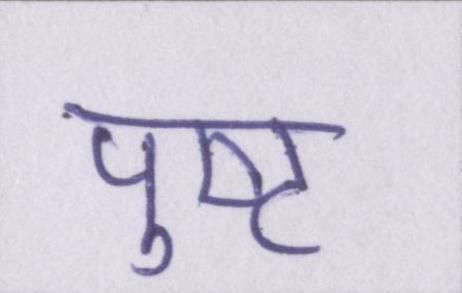 पुष्ट